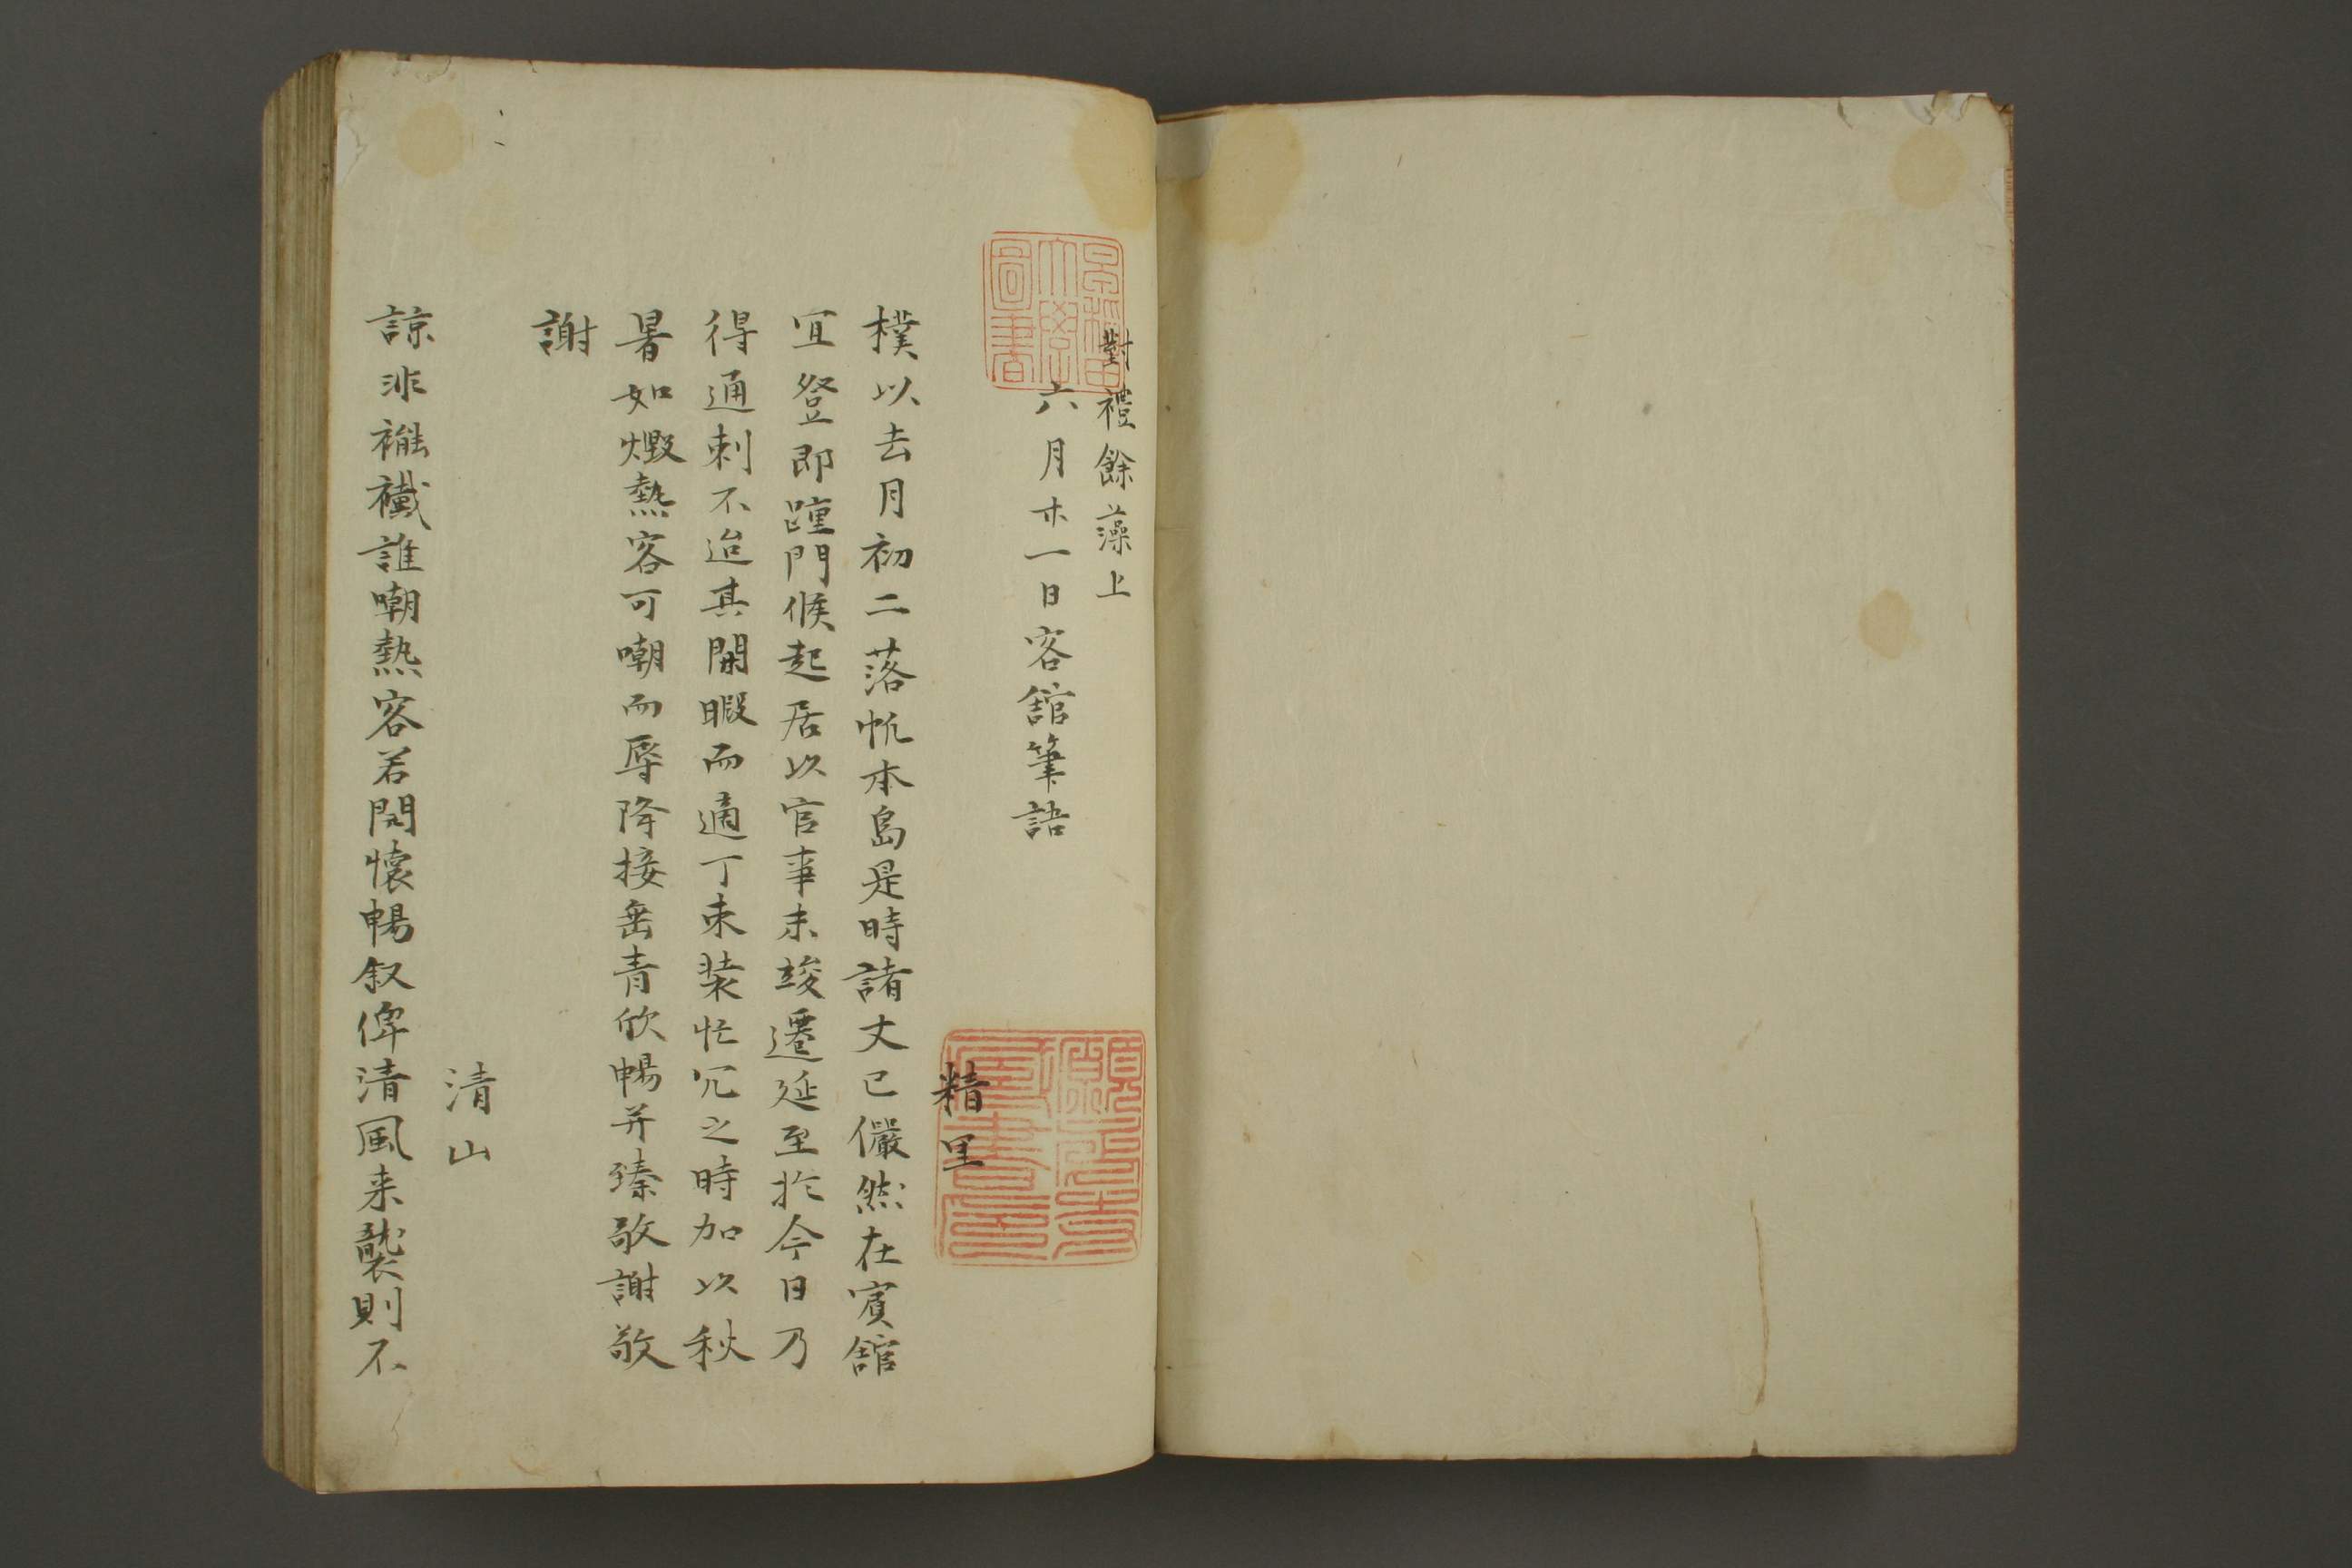 對禮餘藻上
六月廾一日客舘筆語
精里
樸以去月初二落帆本島是時諸丈已儼然在賓舘
宜登即踵門候起居以官事未竣遷延至於今日乃
得通刺不迨其閑暇而適丁束装忙冗之時加以秋
暑如燬熱客可嘲而辱降接岳青欣暢并臻敬謝敬
謝
清山
諒非褦襶誰嘲熱客若開懐暢叙俾清風来襲則不
早稲田大學圖書